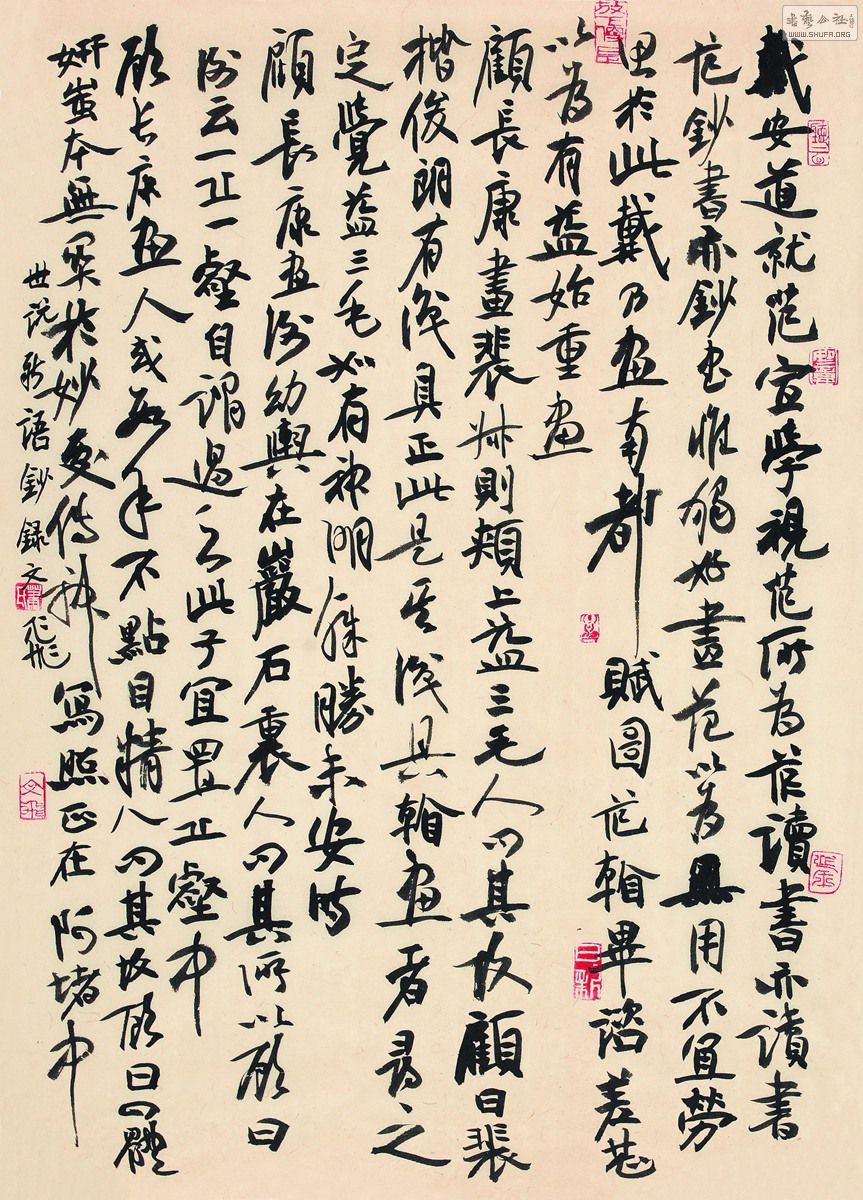 戴安道就范宣學視范所為范讀書亦讀書
范鈔書亦鈔書惟獨好畫范以為無用不宜勞
思於此戴乃畫南都賦圖范看畢諮差甚
以為有益始重畫
顧長康畫裴叔則頰上益三毛人問其故顧曰裴
楷俊朗有識具正此是其識具看畫者尋之
定覺益三毛如有神明殊勝未安時
顧長康畫謝幼輿在巖石裏人問其所以顧曰
謝云一丘一壑自謂過之此子宜置丘壑中
顧長康畫人或數年不點目精人問其故顧曰四體
妍蚩本無關於妙處傳神寫照正在阿堵中
世說新語鈔錄文飛
WWW.SHUFA.ORG